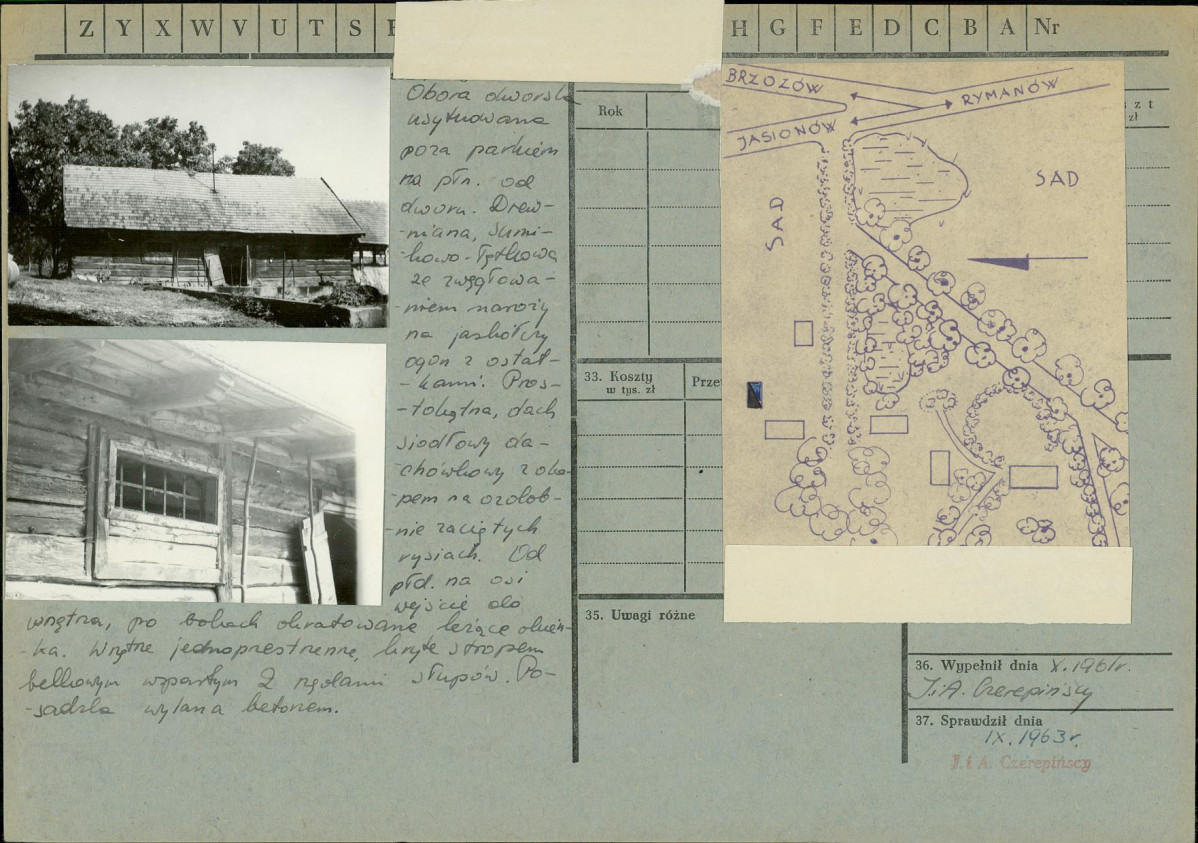 Z Y X W V U T S H G F E D C B A Nr
Obora dworska
usytuowana
poza parkiem
na płn. od
dworu. Drew-
-niana, sumi-
-kowo-łątkowa
ze zwęgłowa-
-niem naroży
na jaskółczy
ogon z ostat-
-kami. Pros-
-tokątna, dach
siodłowy da-
-chówkowy z oka-
-pem na ozdob-
-nie zaciętych
rysiach. Od
płd. na osi
wejście do
wnętrza, po bokach okratowane leżące okien-
-ka. Wnętrze jednoprzestrzenne, kryte stropem
belkowym wspartym 2 rzędami słupów. Po-
-sadzka wylana betonem.
Rok
33. Koszty
w tys. zł
Prze
35. Uwagi różne
BRZOZÓW
RYMANÓW
JASIONÓW
SAD
SAD
szt
zł
36. Wypełnił dnia X.1961r.
J.i A. Czerepińscy
37. Sprawdził dnia
IX.1963r.
J. i A. Czerepińscy